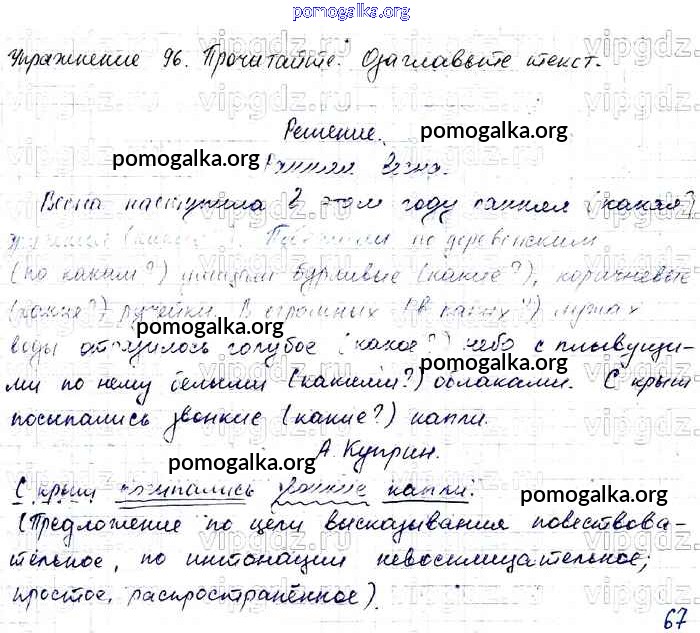 pomogalka.org
Упражнение 96. Прочитайте. Озаглавьте текст.
Решение.
pomogalka.org
pomogalka.org
Ранняя Весна.
Весна наступила в этом году ранняя (какая?),
по деревенским
(по каким?) улицам бурливые (какие?), коричневые
(какие?) ручейки. В огромных (в каких?) лужах
pomogalka.org
воды отразилось голубое (какое?) небо с плывущи-
pomogalka.org
ми по нему белыми (какими?) облаками. С крыш
посыпались звонкие (какие?) капли.
А. Куприн.
pomogalka.org
С крыш посыпались звонкие капли.
pomogalka.org
(Предложение по цели высказывания повествова-
тельное, по интонации невосклицательное;
простое, распространённое).
67